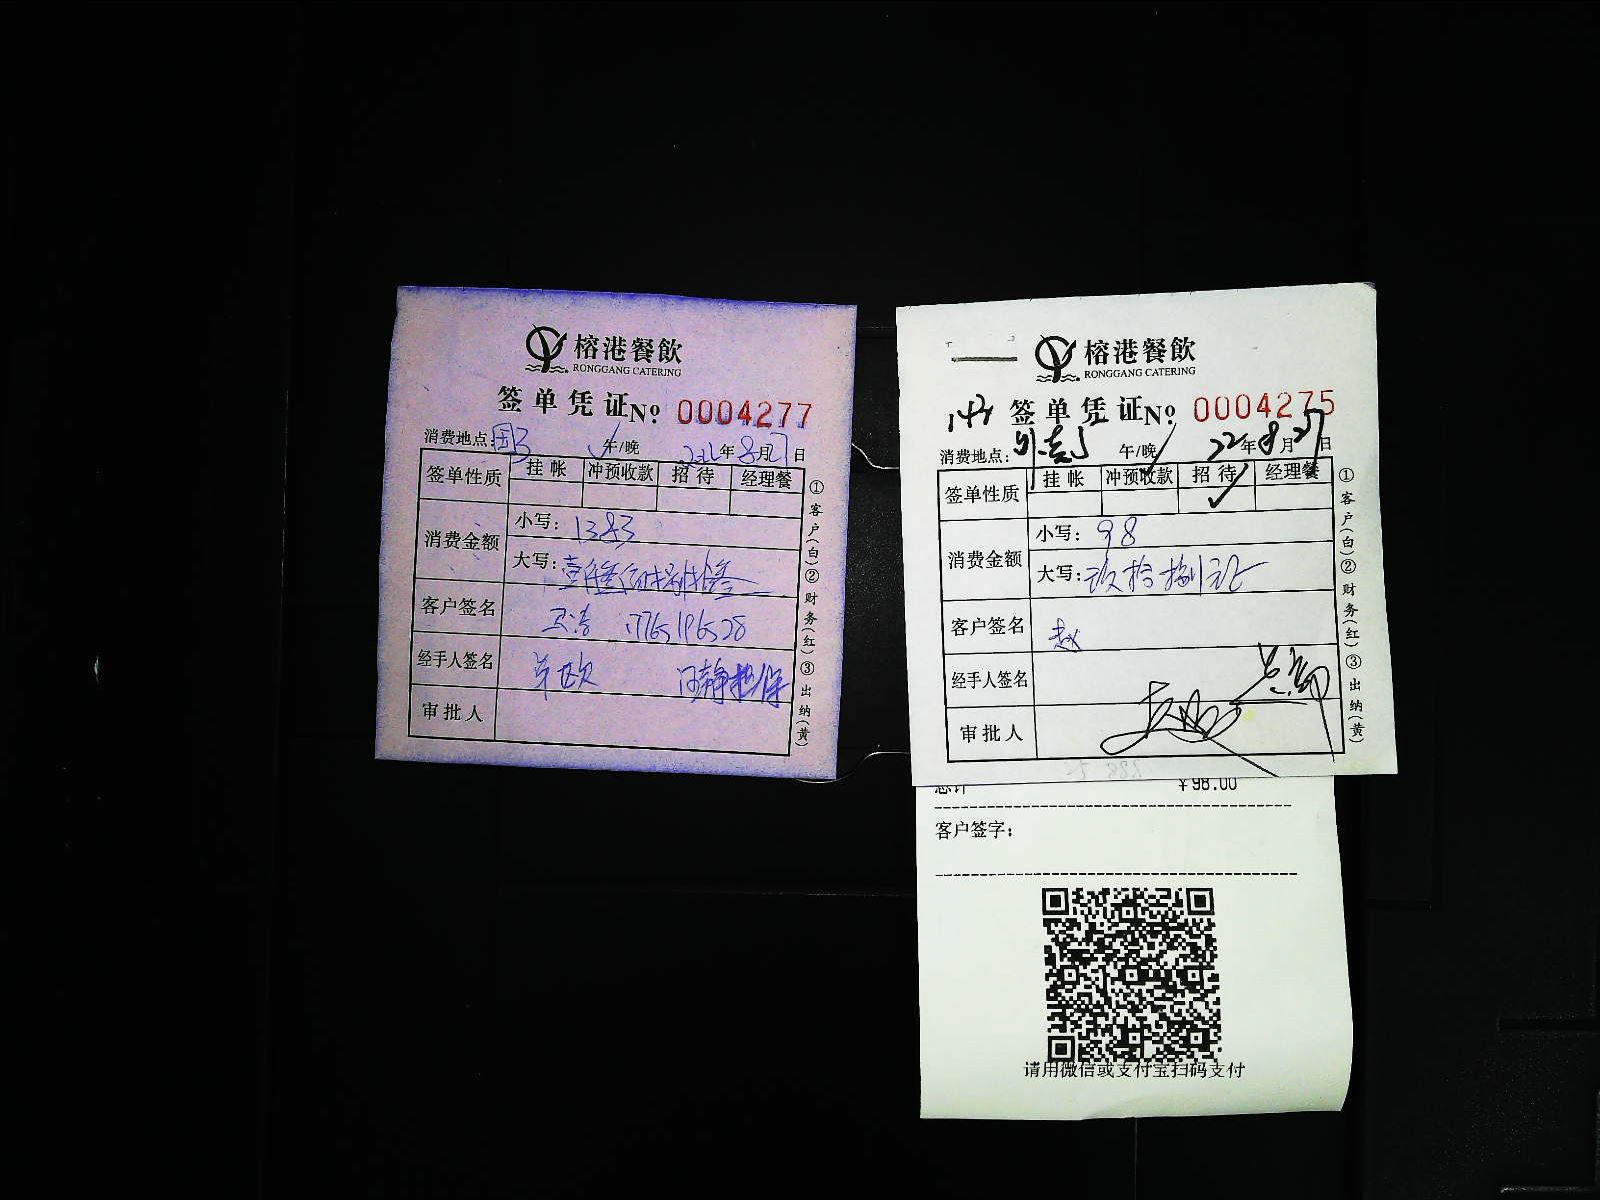 榕港餐飲
RONGGANG CATERING
签单凭证No 0004277
消费地点: 午/晚 年8月27日
签单性质 挂帐 冲预收款 招待 经理餐
消费金额 小写: 1383
大写:
客户签名
经手人签名
审批人
①客户(白)②财务(红)③出纳(黄)
榕港餐飲
RONGGANG CATERING
签单凭证No 0004275
消费地点: 午/晚 22年8月25日
签单性质 挂帐 冲预收款 招待 经理餐
消费金额 小写: 98
大写: 玖拾捌元
客户签名 赵
经手人签名
审批人
①客户(白)②财务(红)③出纳(黄)
总计 ¥98.00
客户签字:
请用微信或支付宝扫码支付